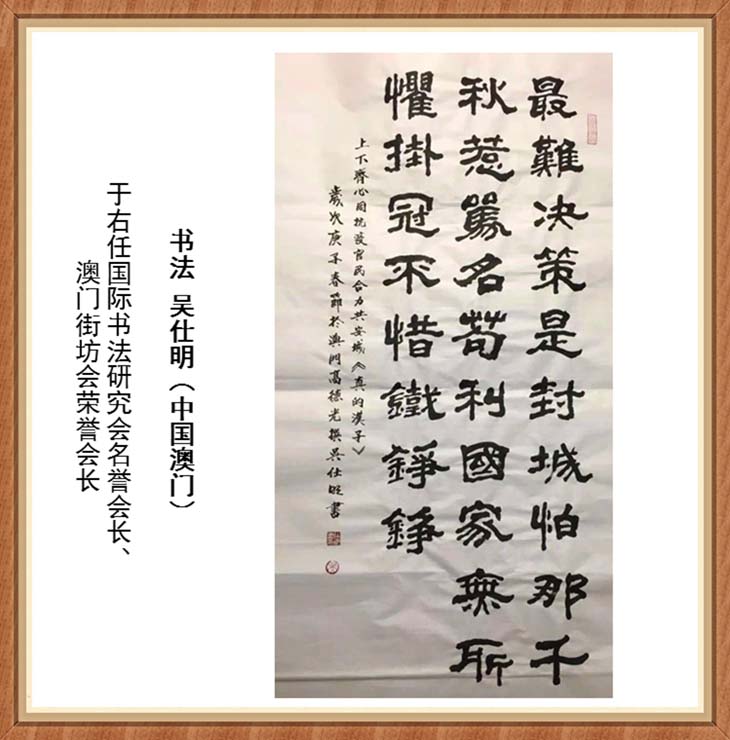 最難决策是封城怕那千
秋惹罵名苟利國家無所
懼掛冠不惜鐵錚錚
上下齊心同抗疫官民合力共安城《真的漢子》
歲次庚子春節於澳門高德光撰吳仕明書
书法 吴仕明（中国澳门）
于右任国际书法研究会名誉会长、
澳门街坊会荣誉会长